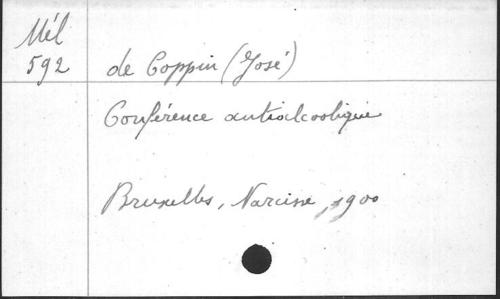 Mél
592
de Coppin (José)
Conférence antialcoolique
Bruxelles, Narcisse, 1900